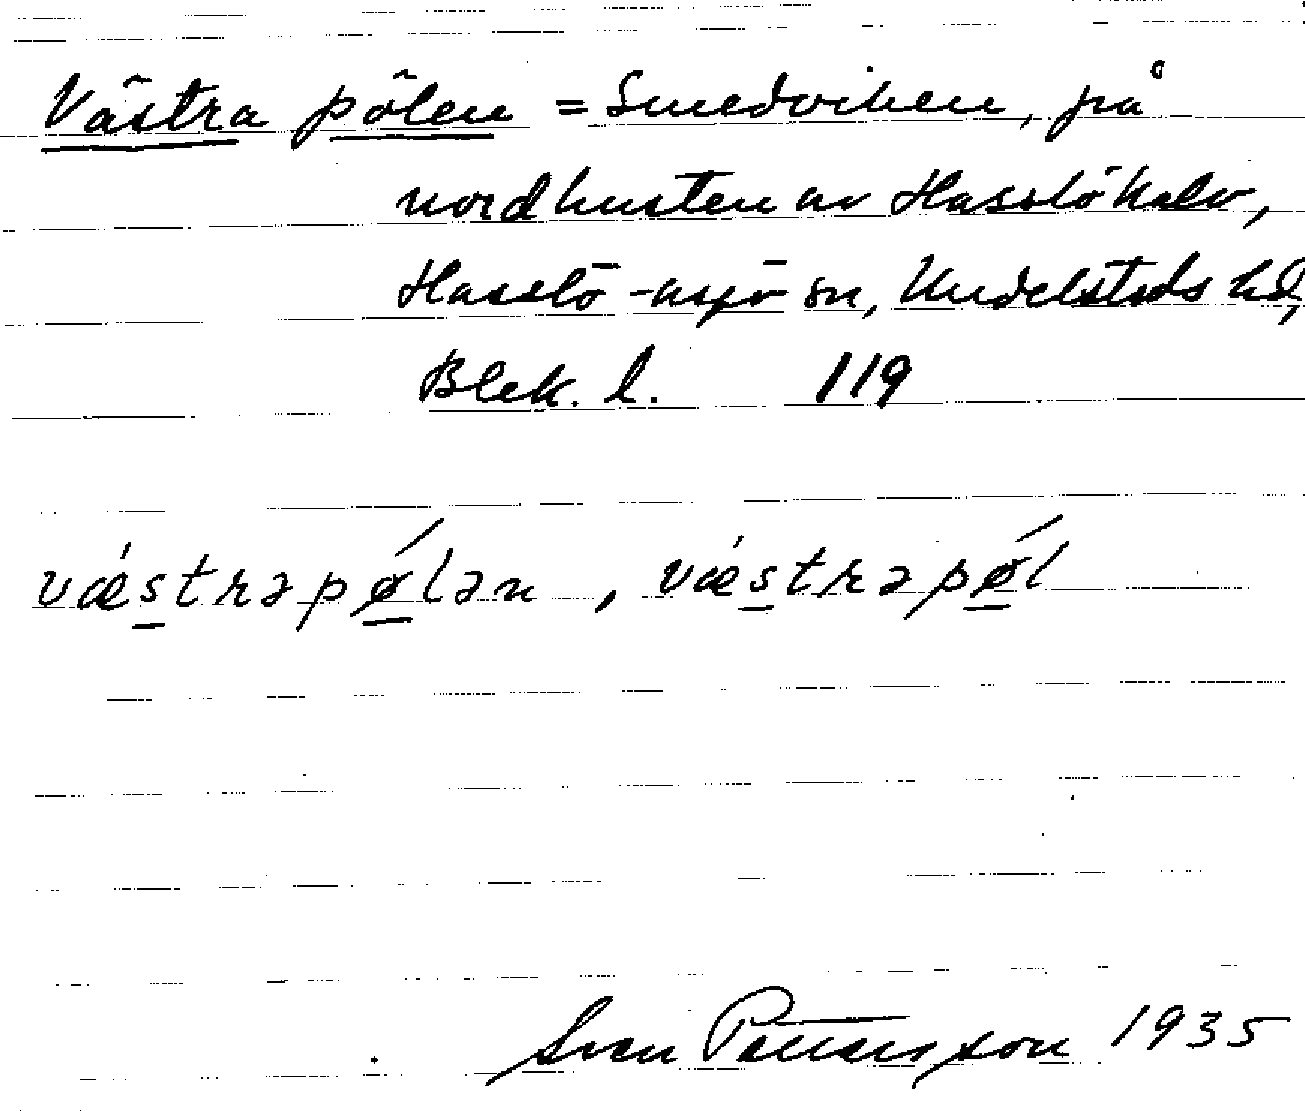 Västra pölen = Smedviken, på
nordkusten av Hasslökalv,
Hasslö-aspö sn, Medelstads hd,
Blek. l. 119
vǽstrəpǿlən, vǽstrəpǿl
Sven Pettersson 1935